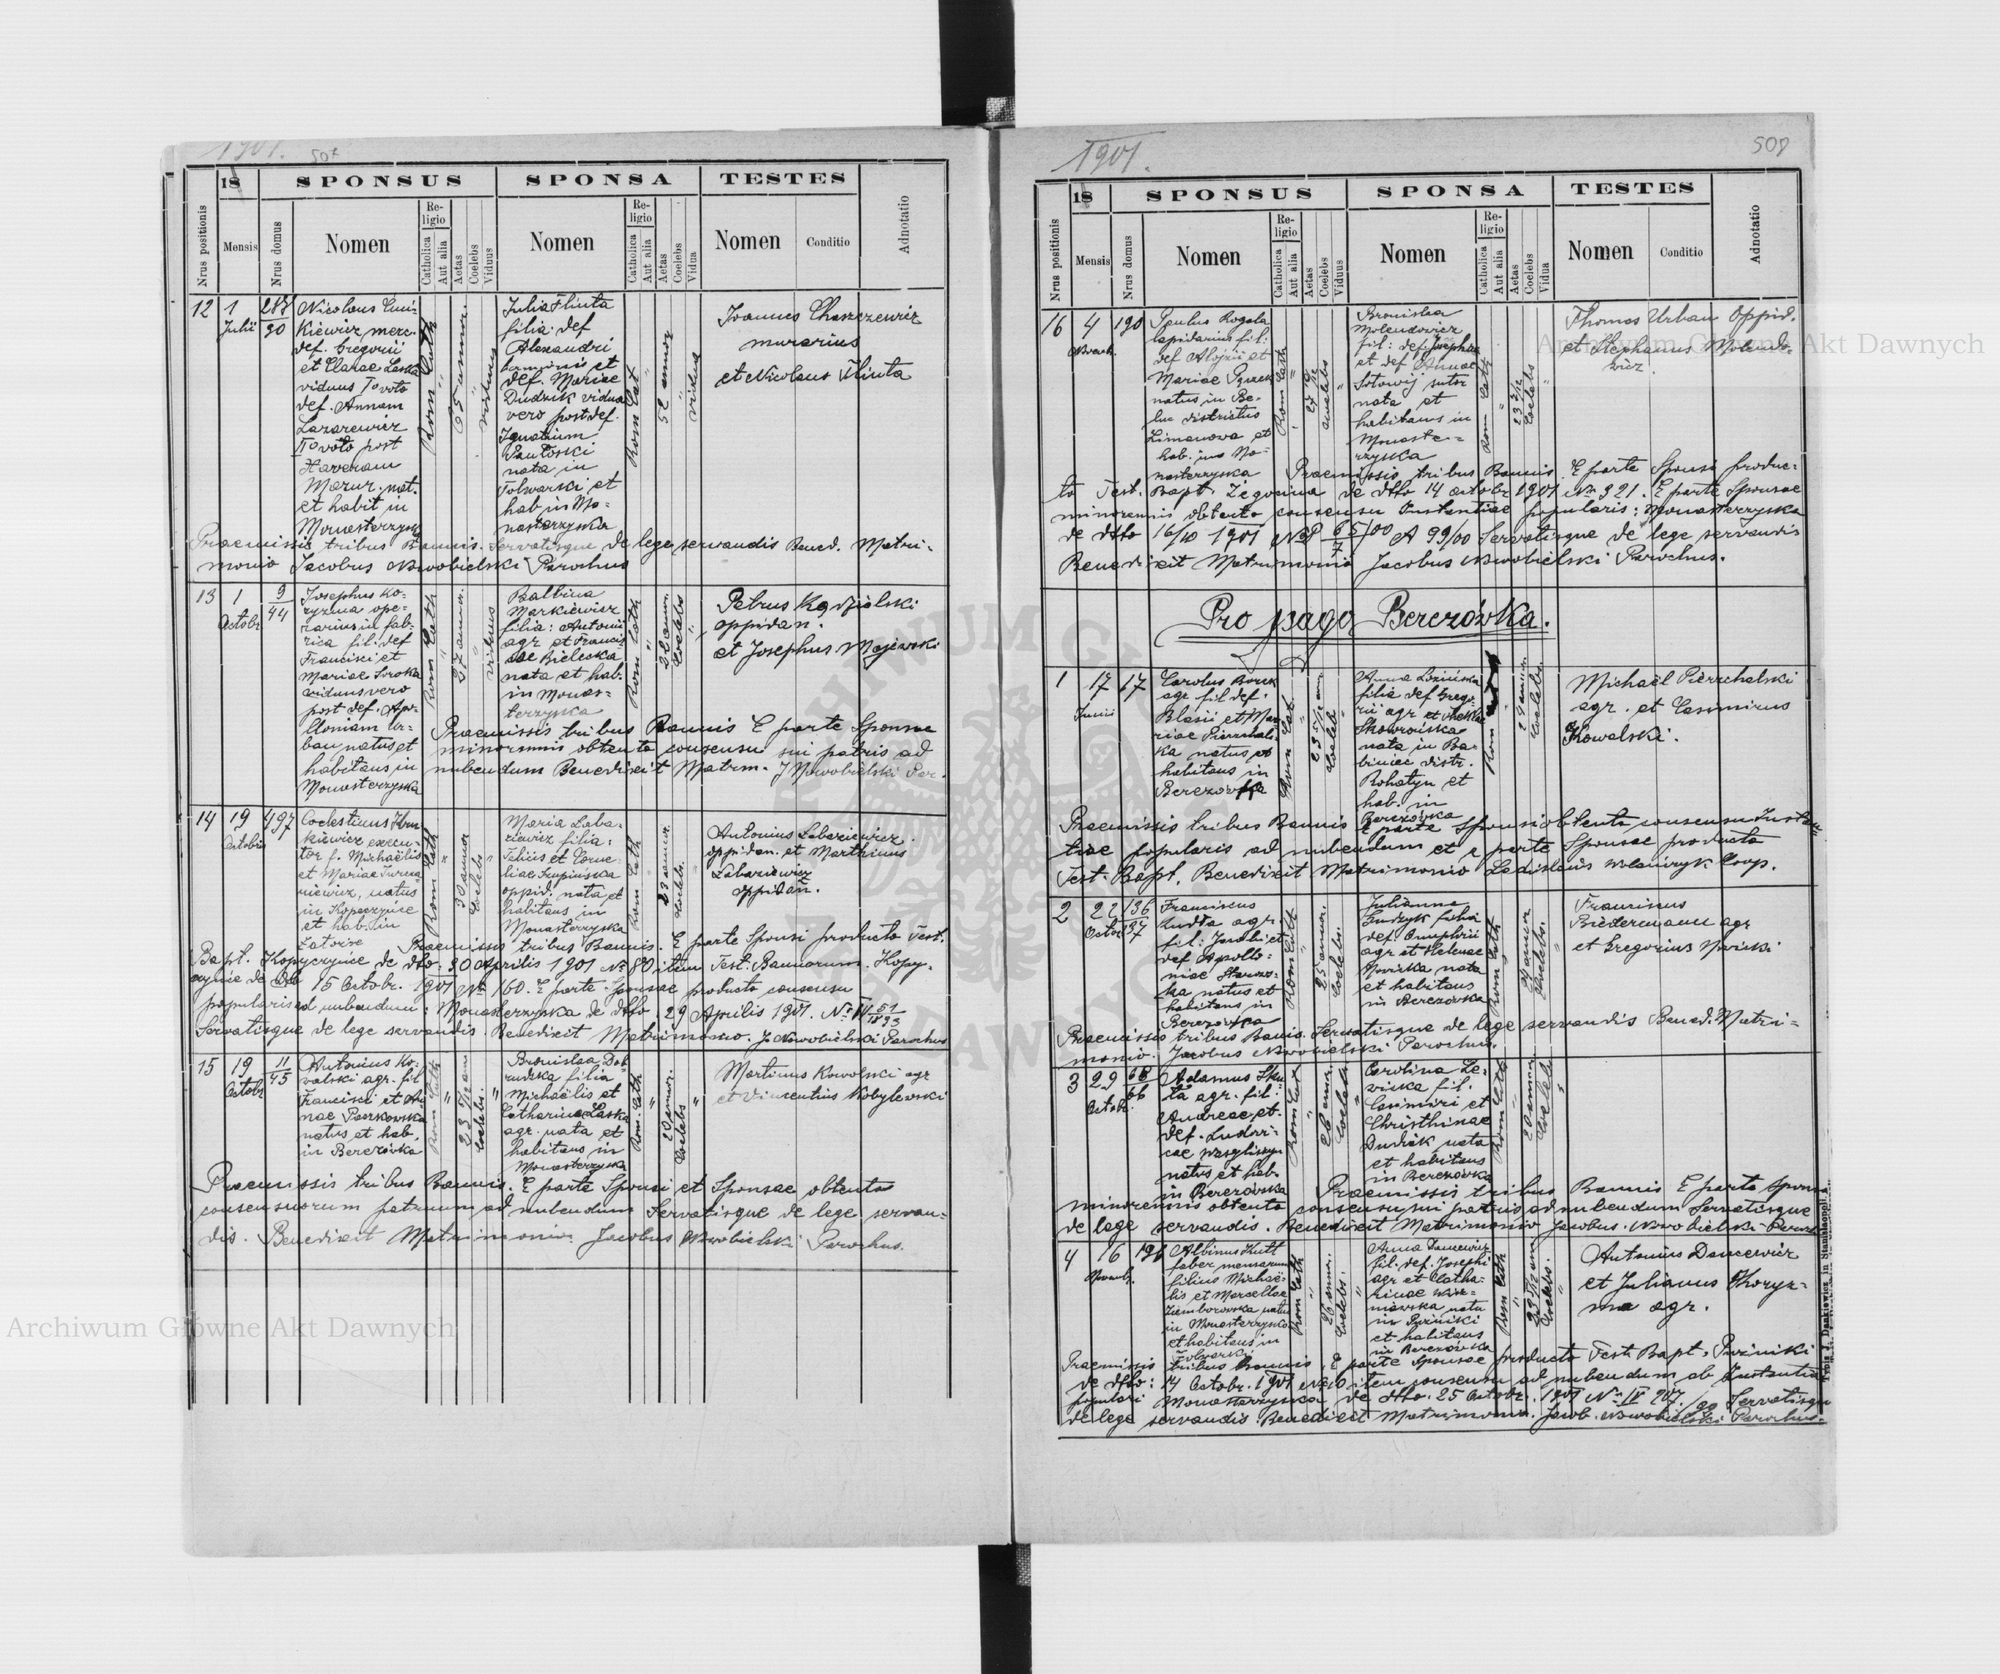 1901. 507
18 SPONSUS SPONSA TESTES
Nrus positionis
Mensis
Nrus domus
Nomen
Religio
Catholica
Aut alia
Aetas
Coelebs
Viduus
Nomen
Religio
Catholica
Aut alia
Aetas
Coelebs
Vidua
Nomen
Conditio
Adnotatio
12 1 Julii
90
Nicolaus
kiewicz merc.
def. Gregorii
et Clarae Laska
viduus 1o voto
def. Annam
Lazarewicz
IIo voto post
Mazur nat.
et habit in
Monasterzysk
Rom Cath
65 annor.
viduus
Julia Fliuta
filia def
Alexandri
et
def. Mariae
Dudzik vidua
vero post def.
Ignatium
nata in
Folwarki et
hab in Mo-
nasterzyska
Rom Cat
52 annor
vidua
Ioannes Chaszczewicz
murarius
et Nicolaus Fliuta
Praemissis tribus Bannis. Servatisque de lege servandis Bened. Matri-
monio Jacobus Nowobielski Parochus
13 1 Octobr
9
44
Josephus Ko-
ryzma ope-
rarius in fab-
rica fil. def
Francisci et
Mariae Sroka
viduus vero
post def. Apo-
lloniam Ur-
ban natus et
habitans in
Monasterzyska
Rom Cath
37 annor.
viduus
Balbina
Markiewicz
filia: Antonii
agr et Francis-
cae Bielecka
nata et hab.
in Monas-
terzyska
Rom Cath
22 annor.
Coelebs
Petrus Kądzielski
oppidan.
et Josephus Majewski
Praemissis tribus Bannis E parte Sponsae
minorennis obtento consensu sui patris ad
nubendum Benedixit Matrim. J Nowobielski Par.
14 19 Octobris 497
Coelestinus
kiewicz execu-
tor f. Michaëlis
et Mariae
niewicz, natus
in Kopeczyńce
et hab. in
Rom Cath
30 annor
Coelebs
Maria Laba-
ziewicz filia:
Felicis et Corne-
liae Krupińska
oppid. nata et
habitans in
Monasterzyska
Rom Cath
23 annor
Coelebs.
Antonius Labaziewicz
oppidan. et Marthinus
Labaziewicz
oppidan.
Praemissis tribus Bannis. E parte Sponsi producto Test.
Bapt. Kopyczyńce de dto: 30 Aprilis 1901 No 80 item Test. Bannorum. Kopy-
czyńce de dto 15 Octobr. 1901 No 160. E parte Sponsae producto consensu
popularis ad nubendum: Monasterzyska de dtto. 29 Aprilis 1901. No IV 51
1893
Servatisque de lege servandis. Benedixit Matrimonio. J. Nowobielski Parochus
15 19 Octobr
11
45
Antonius Ko-
walski agr. fil
Francisci et An-
nae Paszkowska
natus et hab.
in Berezówka
Rom Cath
Coelebs.
Bronislaa Dob-
rudzka filia
Michaëlis et
Catharinae Laska
agr. nata et
habitans in
Monasterzyska
Rom. Cath
20 annor.
Coelebs
Martinus Kowalski agr
et Vincentius Kobylewski
Praemissis tribus Bannis. E parte Sponsi et Sponsae obtento
consensuorum patruum ad nubendum Servatisque de lege servan-
dis. Benedixit Matrimonio Jacobus Nowobielski Parochus.
1901. 508
18 SPONSUS SPONSA TESTES
Nrus positionis
Mensis
Nrus domus
Nomen
Religio
Catholica
Aut alia
Aetas
Coelebs
Viduus
Nomen
Religio
Catholica
Aut alia
Aetas
Coelebs
Vidua
Nomen
Conditio
Adnotatio
16 4 Novemb. 190
Paulus Rogala
lapidarius fil:
def Alojzii et
Mariae
natus in Be-
districtus
Limanova et
hab. ins Mo-
nasterzyska
Rom Cath
coelebs
Bronislaa
Molendowicz
fil: def. Josephi
et def Annae
Sotowij sutor
nata et
habitans in
Monaste-
rzyska
Rom Cath
Coelebs
Thomas Urban oppid.
et Stephanus Molendo-
wicz.
Praemissis tribus Bannis. E parte Sponsi produc-
to Test. Bapt. Żegocina de dtto 14 octobr 1901 No 321. E parte Sponsae
minorennis obtento consensu Instantiae popularis: Monasterzyska
de dtto 16/10 1901 No P 65/00 A 99/00 Servatisque de lege servandis
Benedixit Matrimonio Jacobus Nowobielski Parochus.
Pro pago Berezówka.
1 17 Junii 17
Carolus Borek
agr. fil def.
Blasii et Ma-
riae Pierzchals-
ka natus et
habitans in
Berezowka
Rom Cat.
Coelebs
Anna Łozińska
filia def Grego-
rii agr et
Skowrońska
nata in Ba-
bińce distr.
Rohatyn et
hab. in
Berezowka
Rom
24 annor.
Coelebs.
Michaël Pierzchalski
agr. et Casimirus
Kowalski.
Praemissis tribus Bannis E parte Sponsi obtento consensu Instan-
tiae popularis ad nubendum et e parte Sponsae producto
Test. Bapt. Benedixit Matrimonio Ladislaus Wolańczyk Coop.
2 22 Octobr
136
137
Franciscus
Kudła agr.
fil: Jacobi et
def Apollo-
niae Starow-
ka natus et
habitans in
Berezowka
Rom Cath
25 annor.
Coelebs.
Julianna
filia
def. Onuphrii
agr et Helenae
nata
et habitans
in Berezowka
Rom Cath
24 annor
Coelebs.
Franciscus
Biedermann agr
et Gregorius
Praemissis tribus Bannis. Servatisque de lege servandis Bened. Matri-
monio. Jacobus Nowobielski Parochus.
3 29 Octobr.
68
66
Adamus Sku-
ta agr. fil:
Andreae et
def. Ludovi-
cae
natus et hab.
in Berezówka
Rom Cath
26 annor.
Coelebs
Carolina Le-
wicka fil.
Casimiri et
Christhinae
Dudzik nata
et habitans
in Berezówka
Rom Cath
20 annor
Coelebs
Praemissis tribus Bannis E parte Sponsae
minorennis obtento consensu sui patris ad nubendum Servatisque
de lege servandis. Benedixit Matrimonio Jacobus Nowobielski Paroch
4 16 Novemb.
Albinus Kutt
faber mensarum
filius Michaë-
lis et Marcellae
Ziemborowska natus
in Monasterzyska
et habitans in
Folwarki
Rom Cath
26 annor.
Coelebs.
Anna Dancewicz
fil. def. Josephi
agr et Catha-
rinae Wisz-
niewska nata
in Pużniki
et habitans
in Berezówka
Rom Cath
Coelebs.
Antonius Dancewicz
et Julianus Koryz-
ma agr.
Praemissis tribus Bannis. E parte Sponsae producto Test. Bapt. Pużniki
de dtto: 14 Octobr. 1901 No 10 item consensu ad nubendum ab Instantia
populari Monasterzyska de dtto. 25 Octobr. 1901 No IV 207/90 Servatisque
de lege servandis Benedixit Matrimonio. Jacob. Nowobielski Parochus.
Archiwum Główne Akt Dawnych
Archiwum Główne Akt Dawnych
ARCHIWUM GŁÓWNE AKT DAWNYCH